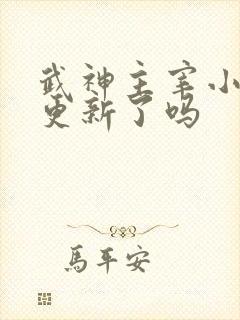 武神主宰小
更新了吗
馬平安